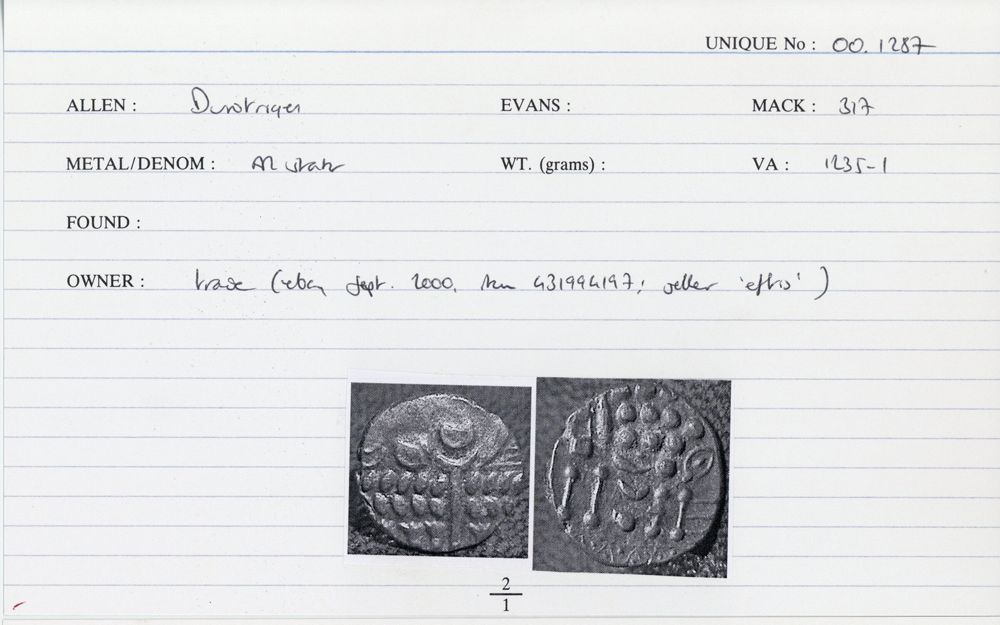 UNIQUE No : 00.1287
ALLEN : Durotriges EVANS : MACK : 317
METAL/DENOM : AR stater WT. (grams) : VA : 1235-1
FOUND :
OWNER : trade (ebay, Sept. 2000, item 431994197; seller 'eftis')
2
1